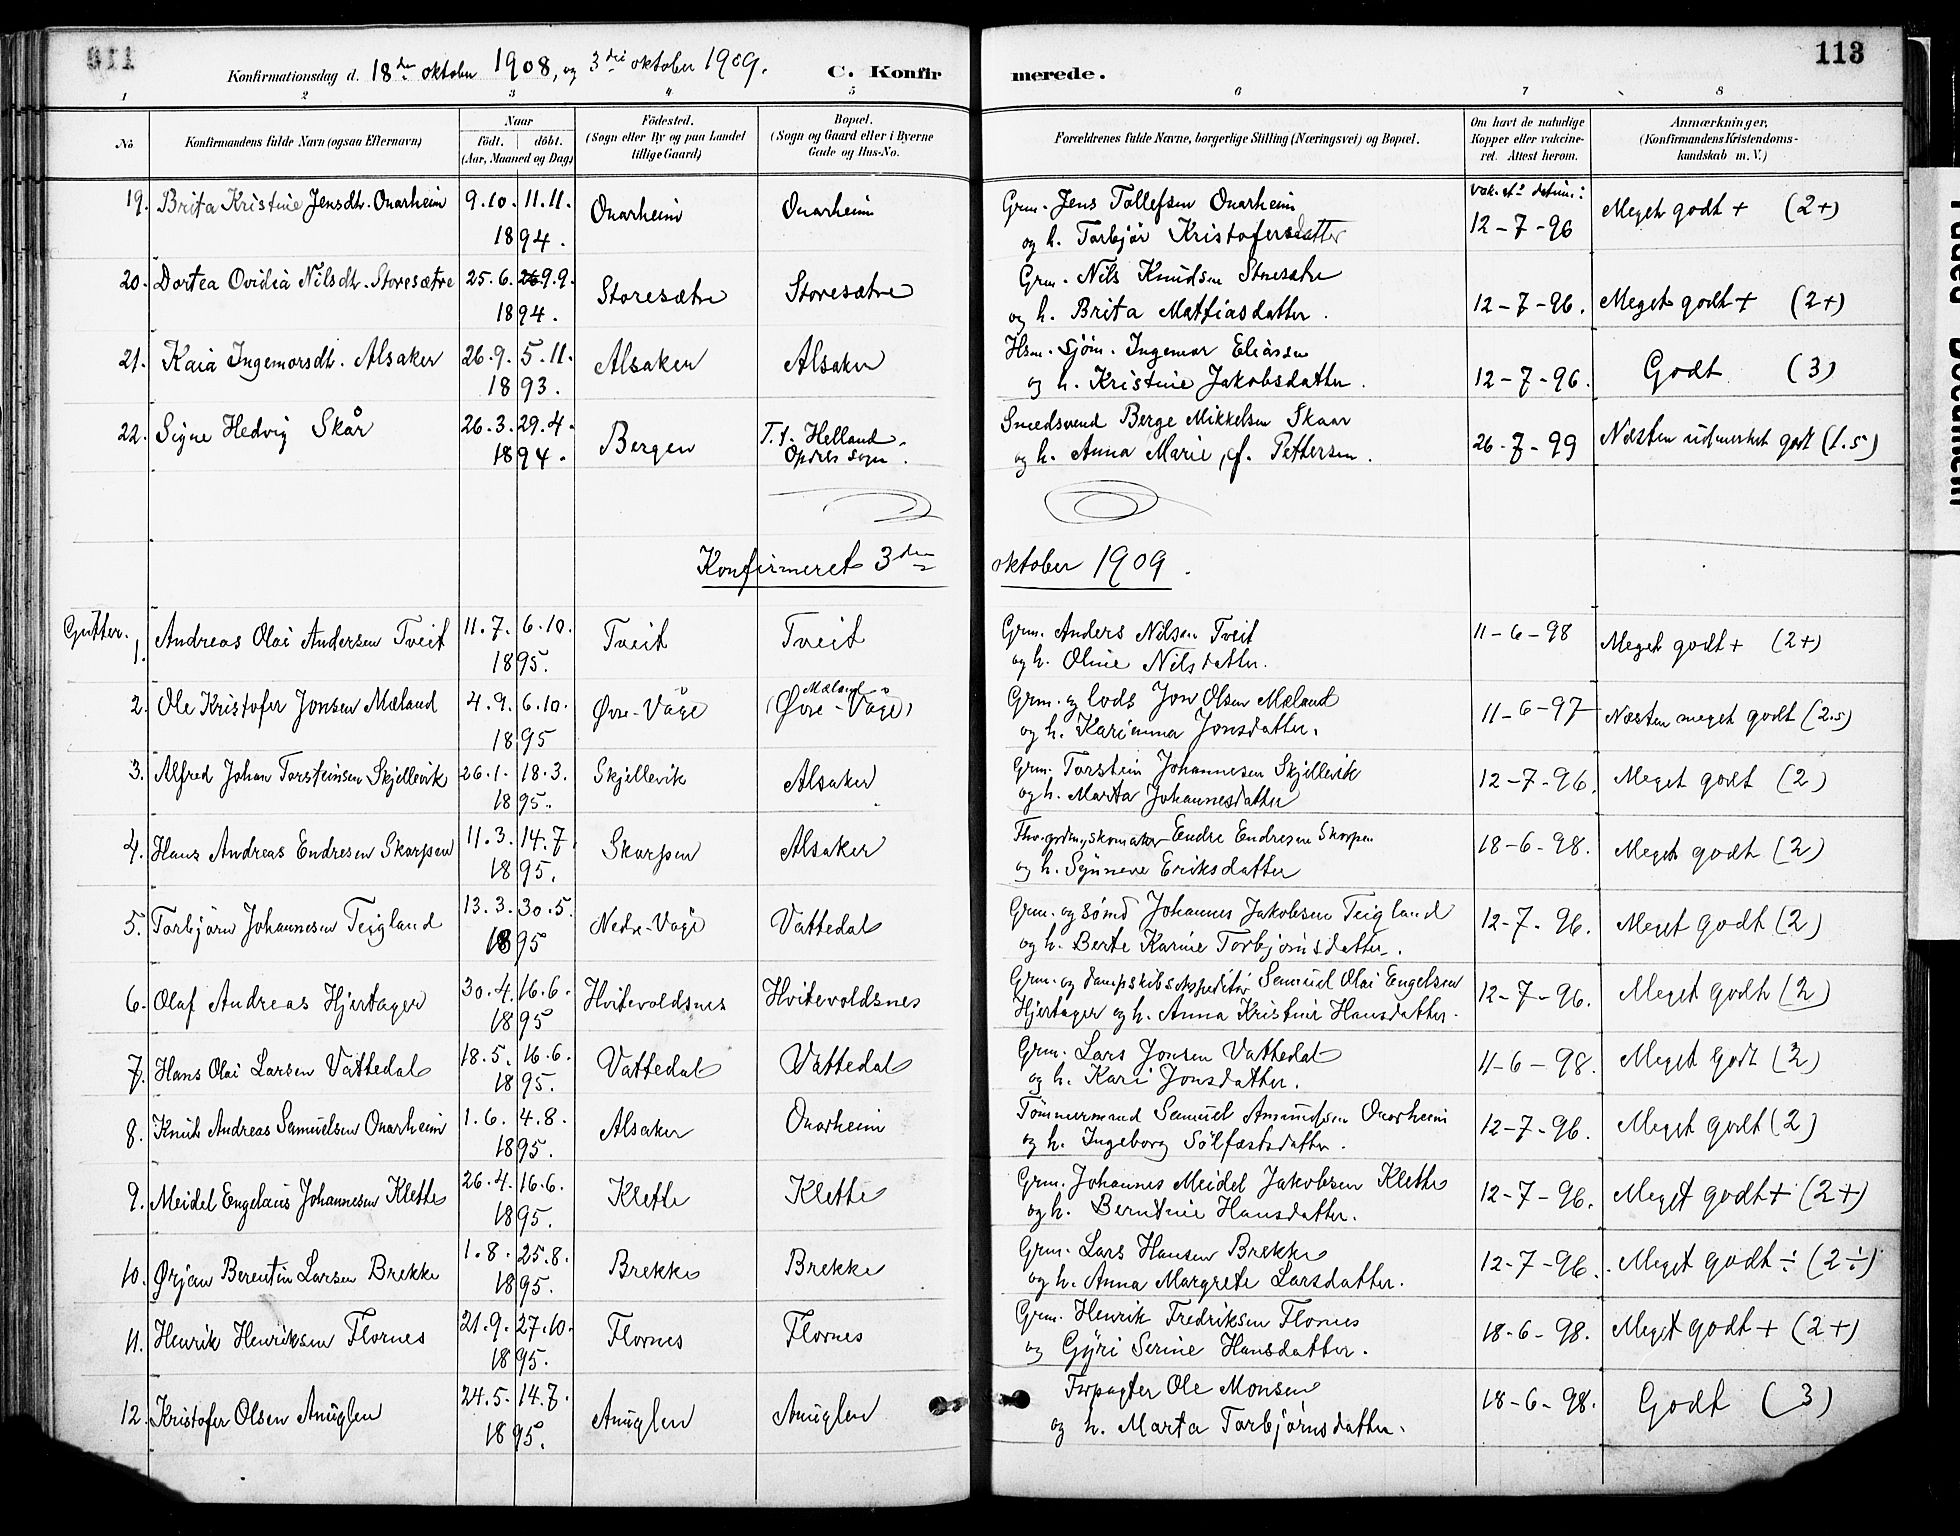 113
Konfirmationsdag d. 18de oktober 1908, og 3die oktober 1909. C. Konfirmerede.
1 2 3 4 5 6 7 8
No Konfirmandens fulde Navn (ogsaa Efternavn) Naar født. døbt. (Aar, Maaned og Dag) Födested. (Sogn eller By og paa Landet tillige Gaard) Bopæl. (Sogn og Gaard eller i Byerne Gade og Hus-No. Forældrenes fulde Navne, borgerlige Stilling (Næringsvei) og Bopæl. Om havt de naturlige Kopper eller vakcineret. Attest herom. Anmærkninger, (Konfirmandens Kristendomskundskab m. V.)
19. Brita Kristine Jensdtr. Onarheim 9.10. 11.11. 1894. Onarheim Onarheim Grm. Jens Tollefsen Onarheim og h. Torbjør Kristofersdatter 12-7-96 Meget godt + (2+)
20. Dortea Ovidia Nilsdtr. Storesætre 25.6. 9.9. 1894. Storesætre Storesætre Grm. Nils Knudsen Storesætre og h. Brita Mathiasdatter. 12-7-96. Meget godt + (2+)
21. Kaia Ingemorsdtr. Alsaker 26.9. 5.11. 1893. Alsaker Alsaker Hsm. sjøm. Ingemar Eliassen og h. Kristine Jakobsdatter. 12-7-96. Godt (3)
22. Signe Hedvig Skår 26.3. 29.4. 1894. Bergen T.f. Helland, sogn. Smedsvend Berge Mikkelsen Skaar og h. Anna Marie, f. Pettersen. 26-7-99 Næsten udmerket godt (1.5)
Konfirmeret 3den oktober 1909.
Gutter.
1. Andreas Olai Andersen Tveit 11.7. 6.10. 1895. Tveit Tveit Grm. Anders Nilsen Tveit og h. Oline Nilsdatter. 11-6-98 Meget godt + (2+)
2. Ole Kristofer Jonsen Mæland 4.9. 6.10. 1895 Øvre-Våge Mæland (Øvre-Våge) Grm. og lods Jon Olsen Mæland og h. Karianna Jonsdatter. 11-6-97 Næsten meget godt (2.5)
3. Alfred Johan Torsteinsen Skjellevik 26.1. 18.3. 1895. Skjellevik Alsaker Grm. Torstein Johannesen Skjellevik og h. Marta Johannesdatter 12-7-96. Meget godt (2)
4. Hans Andreas Endresen Skorpen 11.3. 14.7. 1895. Skorpen Alsaker skomaker Endre Endresen Skorpen og h. Synneve Eriksdatter 18-6-98. Meget godt (2)
5. Torbjørn Johannesen Teigland 13.3. 30.5. 1895 Nedre-Våge Vattedal Grm. og smed Johannes Jakobsen Teigland og h. Berte Karine Torbjørnsdatter. 12-7-96. Meget godt (2)
6. Olaf Andreas Hjertager 30.4. 16.6. 1895 Hvitevoldsnes Hvitevoldsnes Grm. og dampskibsexpeditør Samuel Olai Engelsen Hjertager og h. Anna Kristine Hansdatter. 12-7-96. Meget godt (2)
7. Hans Olai Larsen Vattedal 18.5. 16.6. 1895. Vattedal Vattedal Grm. Lars Jonsen Vattedal og h. Kari Jonsdatter. 11-6-98. Meget godt (2)
8. Knut Andreas Samuelsen Onarheim 1.6. 4.8. 1895. Alsaker Onarheim Tømmermand Samuel Amundsen Onarheim og h. Ingeborg Sølfæstsdatter. 12-7-96. Meget godt (2)
9. Meidel Engelaus Johannesen Klette 26.4. 16.6. 1895. Klette Klette Grm. Johannes Meidel Jakobsen Klette og h. Berntine Hansdatter. 12-7-96. Meget godt + (2+)
10. Ørjan Berentin Larsen Brekke 1.8. 25.8. 1895. Brekke Brekke Grm. Lars Hansen Brekke og h. Anna Margrete Larsdatter. 12-7-96. Meget godt ÷ (2÷)
11. Henrik Henriksen Flornes 21.9. 27.10. 1895. Flornes Flornes Grm. Henrik Fredriksen Flornes og Gyri Serine Hansdatter. 18-6-98. Meget godt + (2+)
12. Kristofer Olsen Anuglen 24.5. 14.7. 1895. Anuglen Anuglen Forpagter Ole Monsen og h. Marta Torbjørnsdatter. 18-6-98. Godt (3)